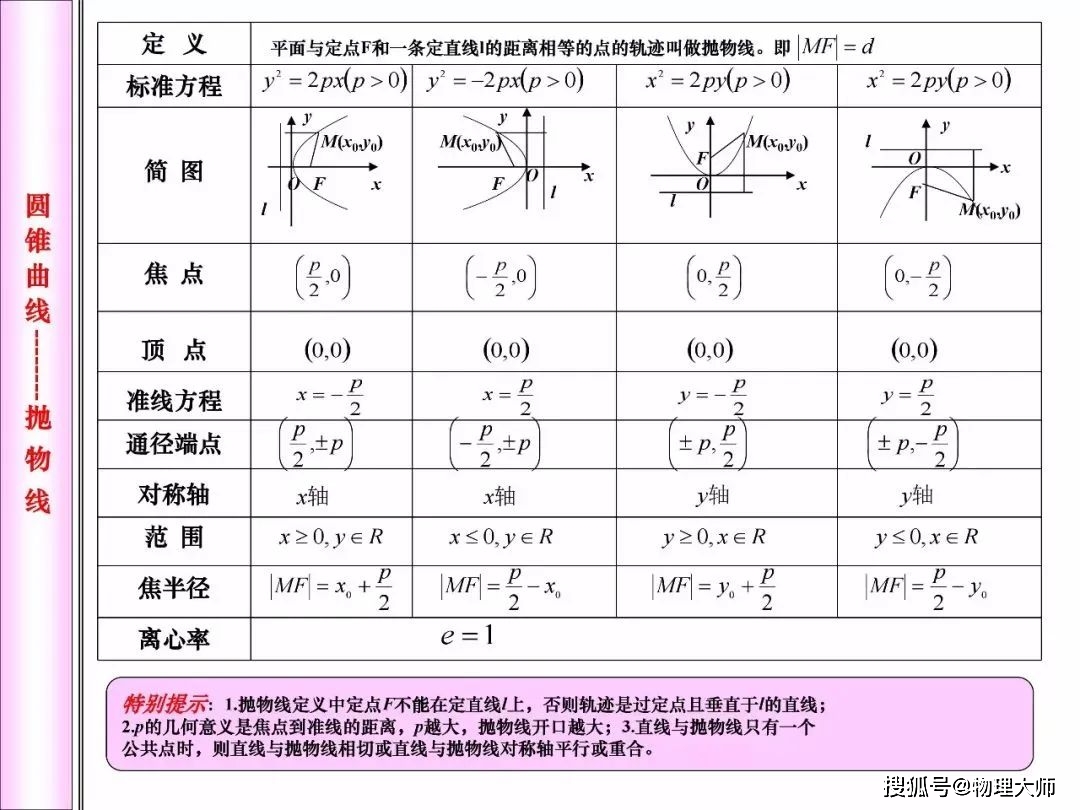 圆锥曲线--------抛物线
定 义 平面与定点F和一条定直线l的距离相等的点的轨迹叫做抛物线。即 |MF| = d
标准方程 y² = 2px(p > 0) y² = -2px(p > 0) x² = 2py(p > 0) x² = 2py(p > 0)
简 图 y M(x₀,y₀) O F x l y M(x₀,y₀) F O x l y M(x₀,y₀) F O x l y l O x F M(x₀,y₀)
焦 点 (p/2,0) (-p/2,0) (0,p/2) (0,-p/2)
顶 点 (0,0) (0,0) (0,0) (0,0)
准线方程 x = -p/2 x = p/2 y = -p/2 y = p/2
通径端点 (p/2,±p) (-p/2,±p) (±p,p/2) (±p,-p/2)
对称轴 x轴 x轴 y轴 y轴
范 围 x ≥ 0, y ∈ R x ≤ 0, y ∈ R y ≥ 0, x ∈ R y ≤ 0, x ∈ R
焦半径 |MF| = x₀ + p/2 |MF| = p/2 - x₀ |MF| = y₀ + p/2 |MF| = p/2 - y₀
离心率 e = 1
特别提示：1.抛物线定义中定点F不能在定直线l上，否则轨迹是过定点且垂直于l的直线；
2.p的几何意义是焦点到准线的距离，p越大，抛物线开口越大；3.直线与抛物线只有一个
公共点时，则直线与抛物线相切或直线与抛物线对称轴平行或重合。
搜狐号@物理大师